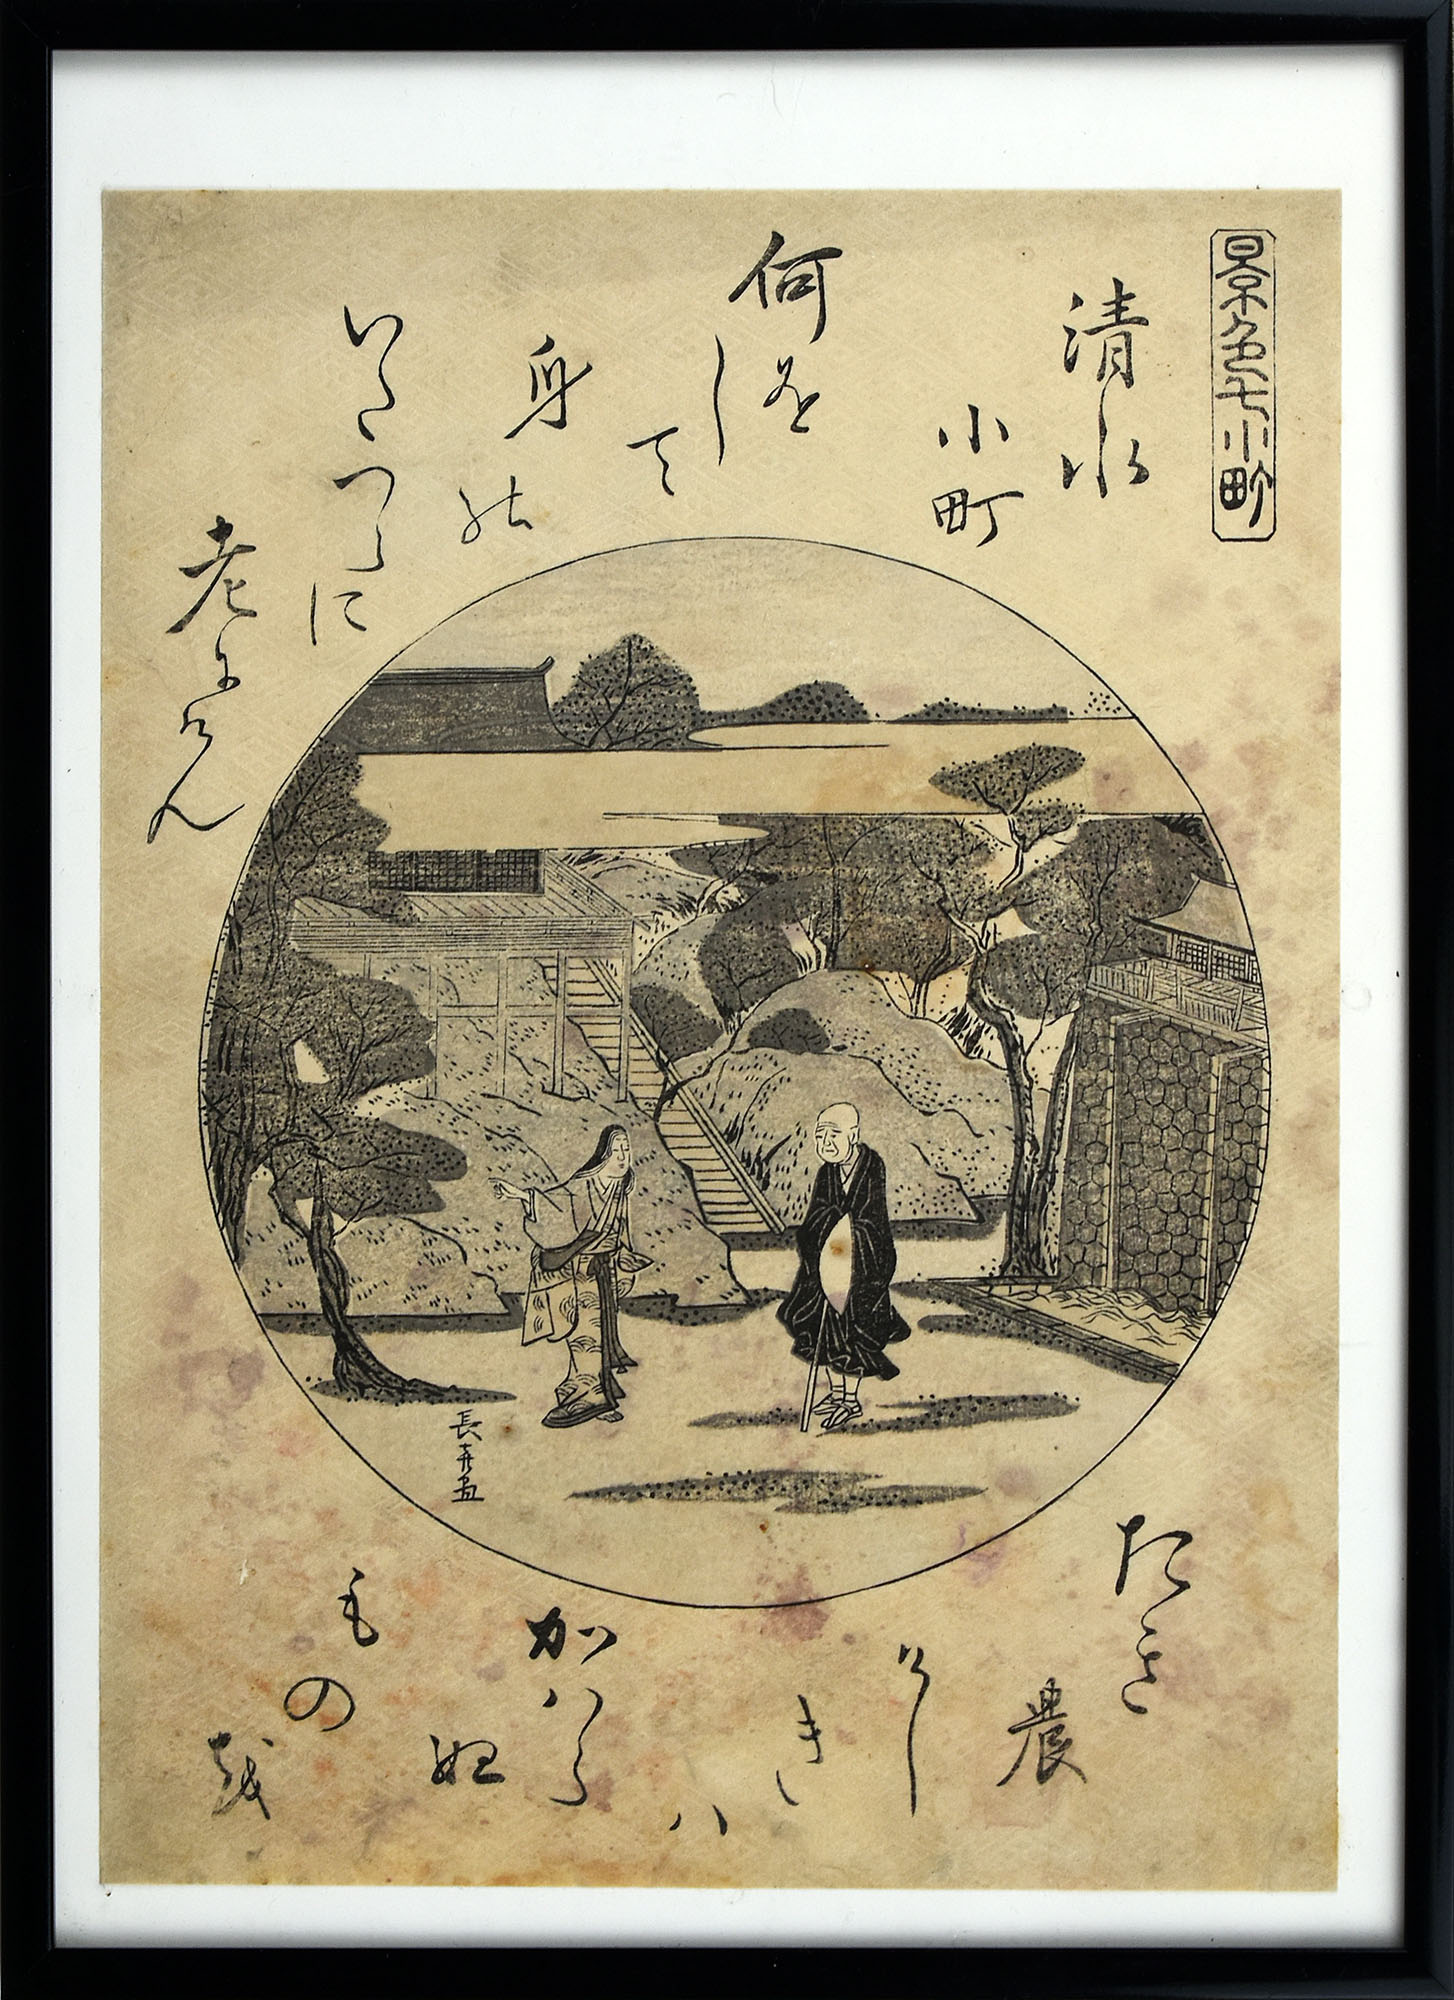 景色七小町
清水
小町
何を
して
身の
いたつらに
老にけん
たき
農
けし
きハ
かハらぬ
もの
越
長喜画